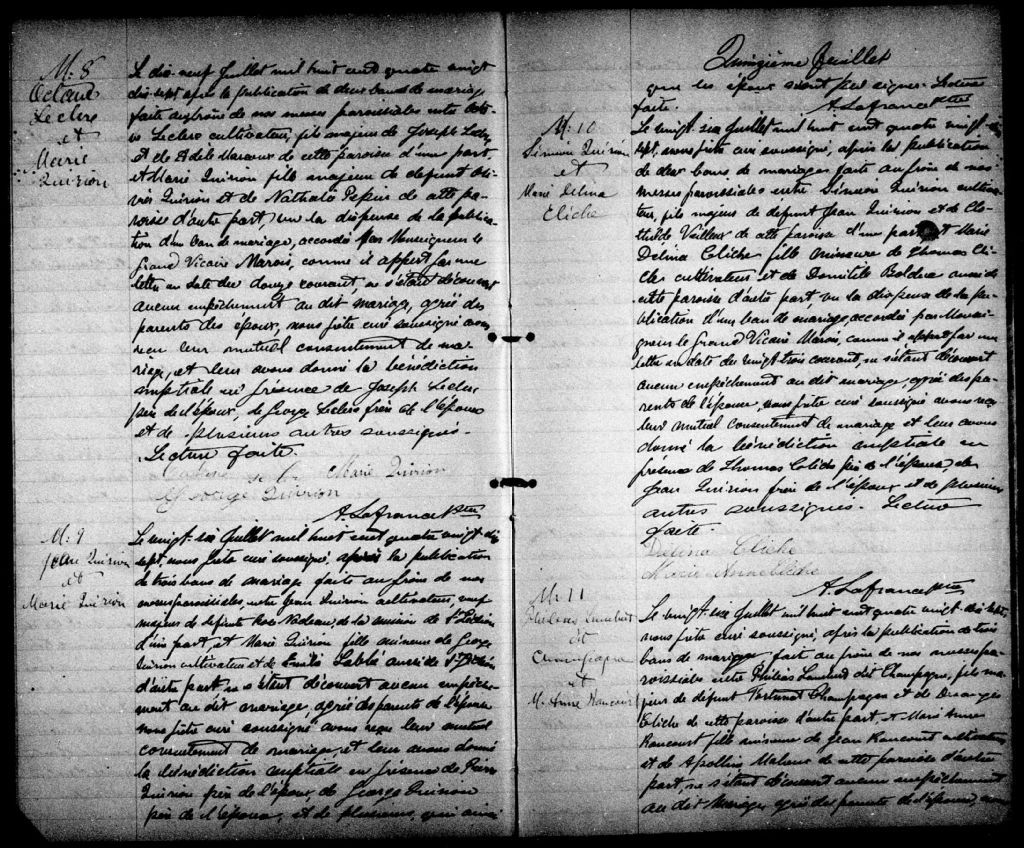 M: 8
Octave
Leclerc
et
Marie
Quirion
Le dix-neuf Juillet mil huit cent quatre vingt
dix-sept après la publication de deux bans de mariage
faite au prône de nos messes paroissiales entre Octa-
ve Leclerc cultivateur, fils majeur de Joseph Leclerc
et de Adèle Marcoux de cette paroisse d'une part,
et Marie Quirion fille majeure de défunt
Quirion et de Nathalie Pepin de cette pa-
roisse d'autre part, vu la dispense de la publica-
tion d'un ban de mariage, accordée par Monseigneur le
Grand Vicaire Marois, comme il appert par une
lettre en date du douze courant, ne s'étant découvert
aucun empêchement au dit mariage, agréé des
parents des époux, nous ptre curé soussigné avons
reçu leur mutuel consentement de ma-
riage, et leur avons donné la bénédiction
nuptiale en présence de Joseph Leclerc
père de l'époux, de George Leclerc frère de l'époux
et de plusieurs autres soussignés.
Lecture faite.
Marie Quirion
George Quirion
A. Lafrance Ptre
M: 9
Jean Quirion
et
Marie Quirion
Le vingt-six Juillet mil huit cent quatre vingt dix
sept, nous ptre curé soussigné, après la publication
de trois bans de mariage faite au prône de nos
messes paroissiales, entre Jean Quirion cultivateur, veuf
majeur de défunte Rose Nadeau, de la mission de
d'une part, et Marie Quirion fille mineure de George
Quirion cultivateur et de Labbé aussi de
d'autre part, ne s'étant découvert aucun empêche-
ment au dit mariage, agréé des parents de l'épouse
nous ptre curé soussigné avons reçu leur mutuel
consentement de mariage, et leur avons donné
la bénédiction nuptiale en présence de Pierre
Quirion père de l'époux, de George Quirion
père de l'épouse, et de plusieurs, qui ainsi
Quinzième feuillet
que les époux n'ont pu signer. Lecture
faite.
A. Lafrance Ptre
M: 10
Siméon Quirion
et
Marie Délina
Cliche
Le vingt six Juillet mil huit cent quatre vingt dix
sept, nous ptre curé soussigné, après la publication
de deux bans de mariage faite au prône de nos
messes paroissiales entre Siméon Quirion cultiva-
teur, fils majeur de défunt Jean Quirion et de Clo-
thilde Veilleux de cette paroisse d'une part et Marie
Délina Cliche fille mineure de Thomas Cli-
che cultivateur et de Domitille Bolduc aussi de
cette paroisse d'autre part vu la dispense de la pu-
blication d'un ban de mariage, accordée par Monsei-
gneur le Grand Vicaire Marois, comme il appert par une
lettre en date du vingt-trois courant, ne s'étant découvert
aucun empêchement au dit mariage, agréé des pa-
rents de l'épouse, nous ptre curé soussigné avons reçu
leur mutuel consentement de mariage et leur avons
donné la bénédiction nuptiale en
présence de Thomas Cliche père de l'épouse, de
Jean Quirion frère de l'époux et de plusieurs
autres soussignés. Lecture
faite.
Delina Cliche
Marie Anna Cliche
A. Lafrance Ptre
M: 11
dit
Champagne
et
M. Anne Rancourt
Le vingt-six Juillet mil huit cent quatre vingt dix sept,
nous ptre curé soussigné, après la publication de trois
bans de mariage fait au prône de nos messes pa-
roissiales entre Philéas dit Champagne, fils ma-
jeur de défunt Fortunat Champagne et de
Cliche de cette paroisse d'autre part, et Marie Anne
Rancourt fille mineure de Jean Rancourt cultivateur
et de Apolline Maheux de cette paroisse d'autre
part, ne s'étant découvert aucun empêchement
au dit mariage agréé des parents de l'épouse, nous